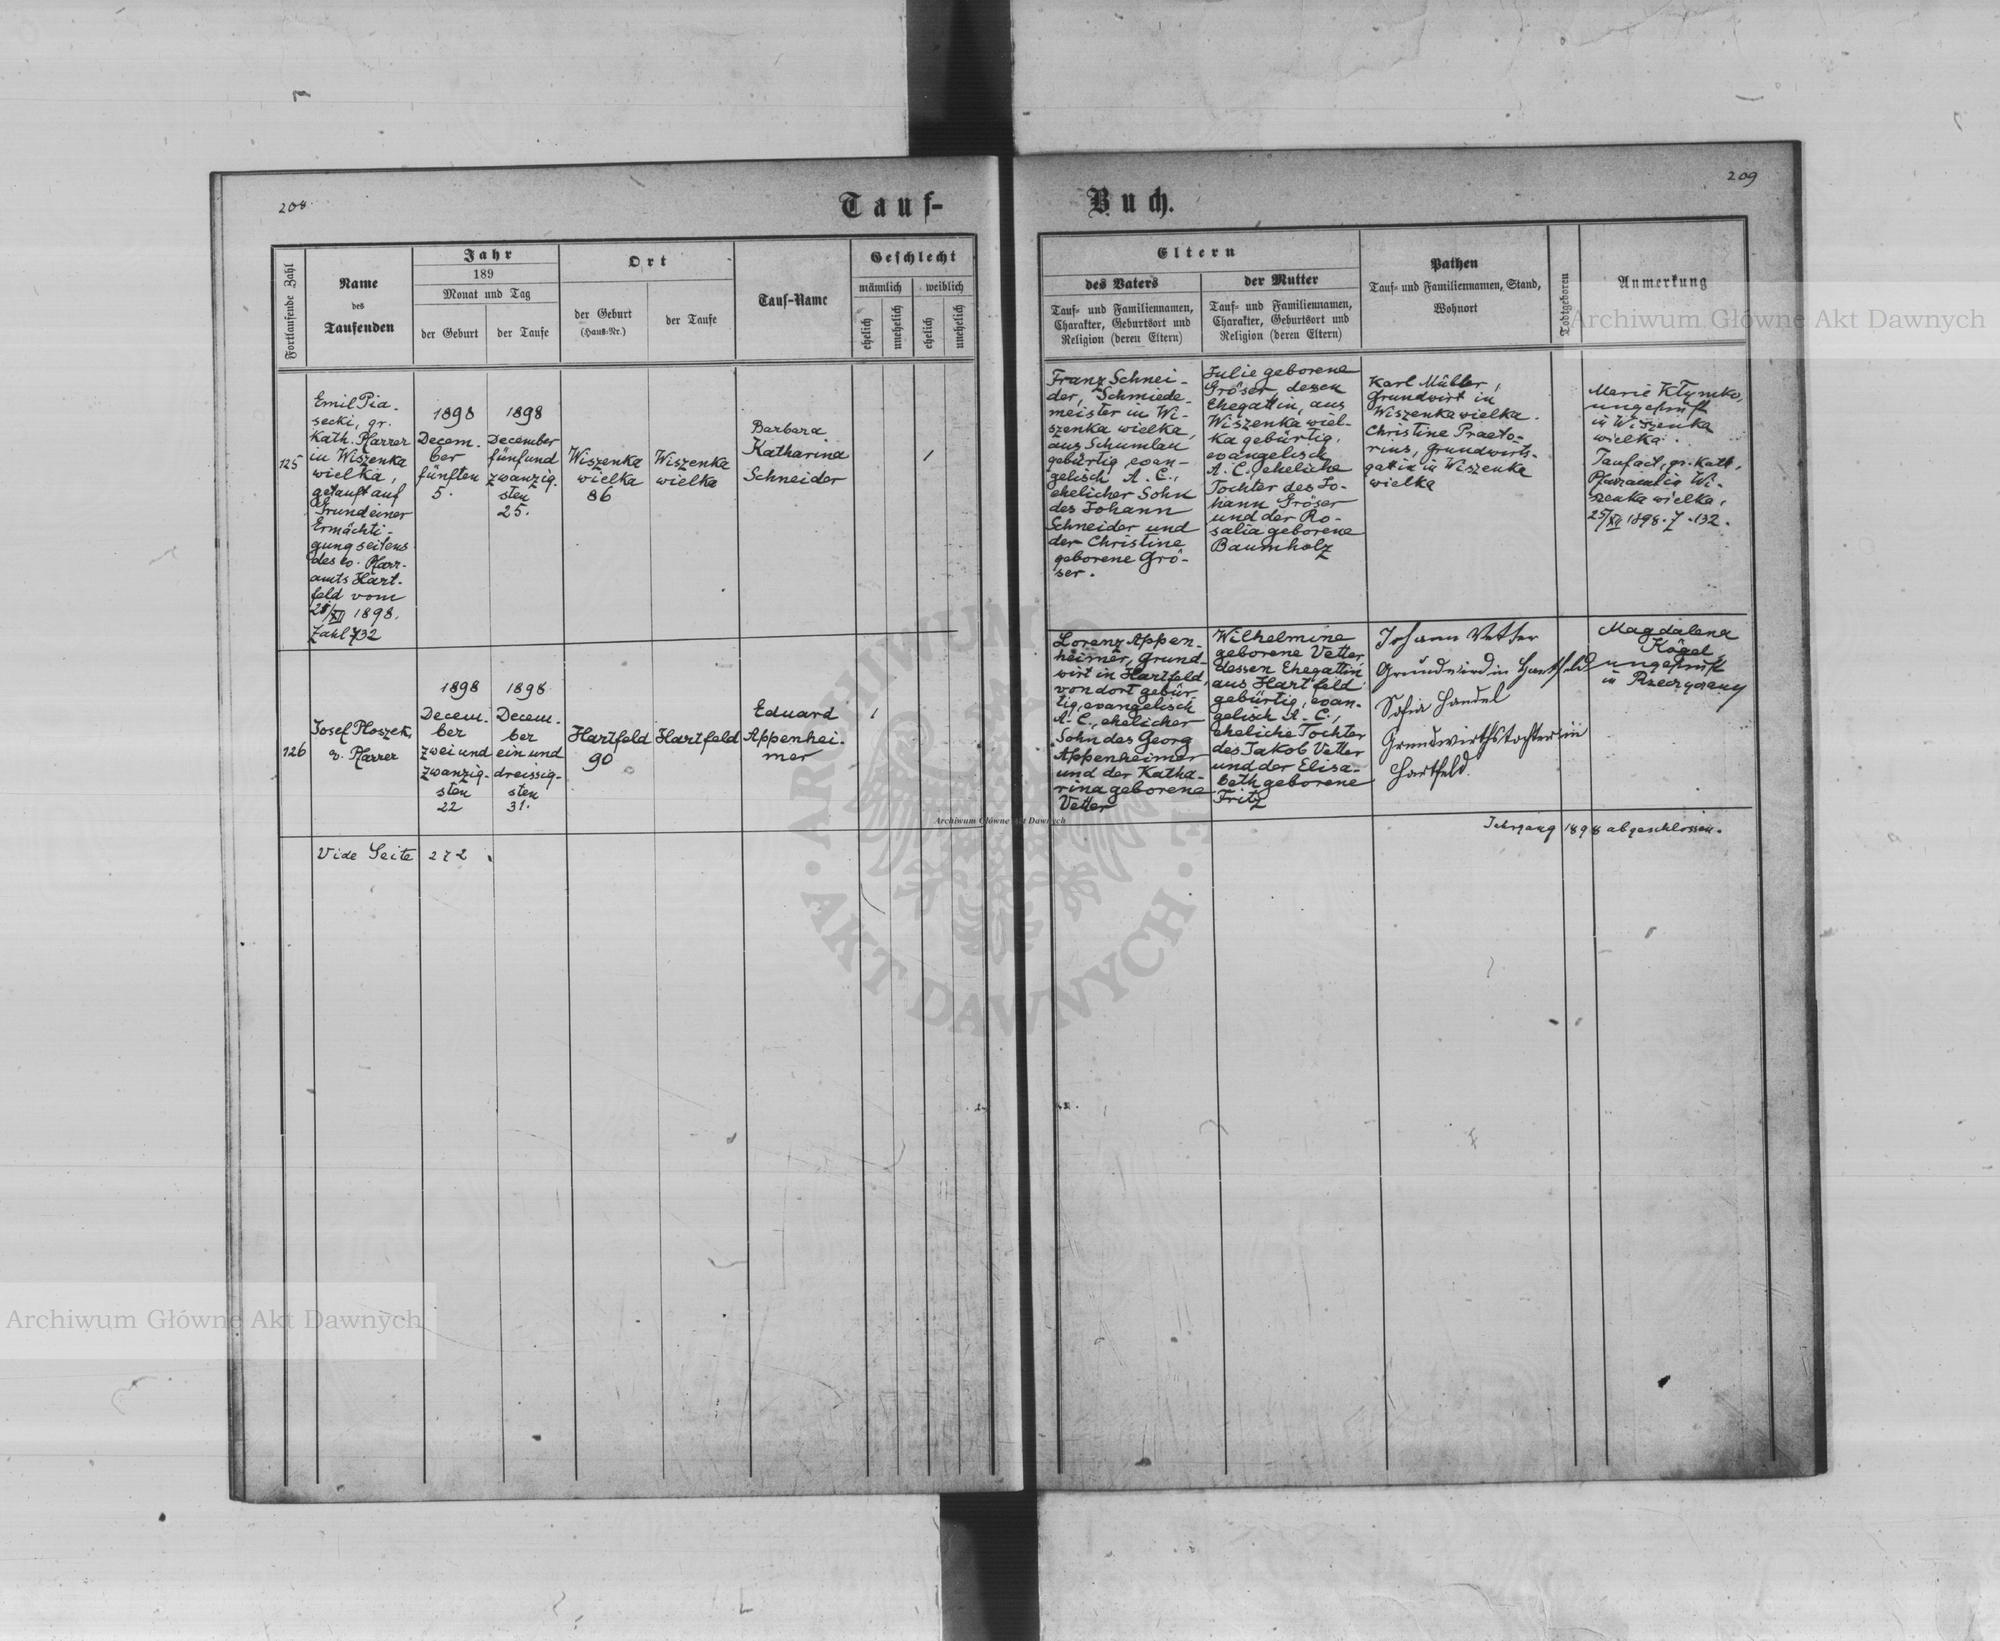 208.
Tauf-
Buch.
209
Fortlaufende Zahl
Name
des
Taufenden
Jahr
189
Monat und Tag
der Geburt
der Taufe
Ort
der Geburt
(Haus-Nr.)
der Taufe
Tauf-Name
Geschlecht
männlich
weiblich
ehelich
unehelich
ehelich
unehelich
Eltern
des Vaters
Tauf- und Familiennamen,
Charakter, Geburtsort und
Religion (deren Eltern)
der Mutter
Tauf- und Familiennamen,
Charakter, Geburtsort und
Religion (deren Eltern)
Pathen
Tauf- und Familiennamen, Stand,
Wohnort
Todtgeboren
Anmerkung
125
Emil Pia-
secki, gr.
Kath. Pfarrer
in Wiszenka
wielka,
getauft auf
Grund einer
Ermächti-
gung seitens
des ev. Pfarr-
amts Hart-
feld vom
/XII 1898.
Zahl 732
1898
Decem-
ber
fünften
5.
1898
December
fünfund
zwanzig-
sten
25.
Wiszenka
wielka
86
Wiszenka
wielka
Barbara
Katharina
Schneider
1
Franz Schnei-
der, Schmiede-
meister in Wi-
szenka wielka,
aus Schumlau
gebürtig, evan-
gelisch A. C.,
ehelicher Sohn
des Johann
Schneider und
der Christine
geborene Grö-
ser.
Julie geborene
Gröser, dessen
Ehegattin, aus
Wiszenka wiel-
ka gebürtig,
evangelisch
A. C., eheliche
Tochter des Jo-
hann Gröser
und der Ro-
salia geborene
Baumholz
Karl Müller,
Grundwirt in
Wiszenka wielka.
Christine Praeto-
rius, Grundwirts-
gattin in Wiszenka
wielka
Marie Kłymko,
ungeprüft
in Wiszenka
wielka.
Taufact, gr. Kath.
Wi-
szenka wielka,
25/XII 1898. 7. 132.
126
Josef Ploszek,
ev. Pfarrer
1898
Decem-
ber
zwei und
zwanzig-
sten
22
1898
Decem-
ber
ein und
dreissig-
sten
31.
Hartfeld
90
Hartfeld
Eduard
Appenhei-
mer
1
Lorenz Appen-
heimer, Grund-
wirt in Hartfeld,
von dort gebür-
tig, evangelisch
A. C., ehelicher
Sohn des Georg
Appenheimer
und der Katha-
rina geborene
Vetter
Wilhelmine
geborene Vetter,
dessen Ehegattin
aus Hartfeld
gebürtig, evan-
gelisch A. C.,
eheliche Tochter
des Jakob Vetter
und der Elisa-
beth geborene
Fritz
Johann Vetter
Grundwird in Hartfeld
Sofia Handel
Grundwirthstochter in
Hartfeld.
Magdalena
Kögel,
ungeprüft
in Rzeczyczany
Jahrgang 1898 abgeschlossen.
Vide Seite 272
Archiwum Główne Akt Dawnych
Archiwum Główne Akt Dawnych
Archiwum Główne Akt Dawnych
ARCHIWUM GŁÓWNE
AKT DAWNYCH